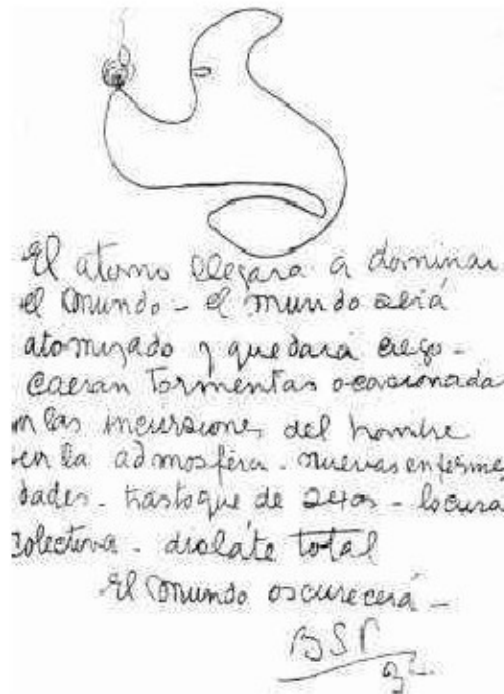 El atomo llegara a dominar
el mundo - el mundo será
atomizado y quedará ciego -
caeran tormentas ocacionada
las incursiones del hombre
en la admosfera. nuevas enferme
dades. trastoque de sexos - locura
colectiva - dislate total
El mundo oscurecerá -
BSP